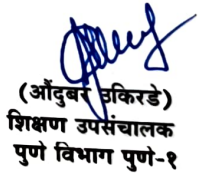 (औदुंबर उकिरडे)
शिक्षण उपसंचालक
पुणे विभाग पुणे-१